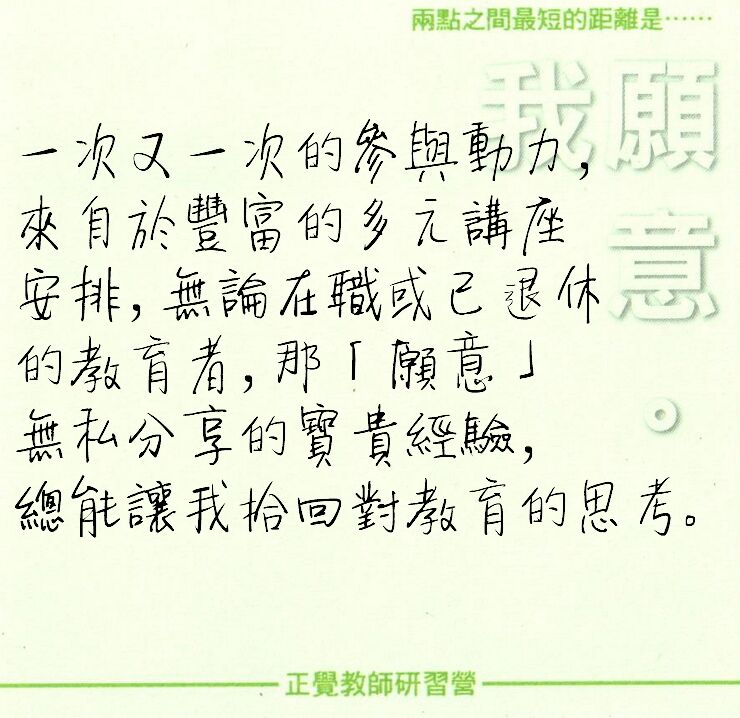 兩點之間最短的距離是……
我願意。
一次又一次的參與動力，
來自於豐富的多元講座
安排，無論在職或已退休
的教育者，那「願意」
無私分享的寶貴經驗，
總能讓我拾回對教育的思考。
正覺教師研習營